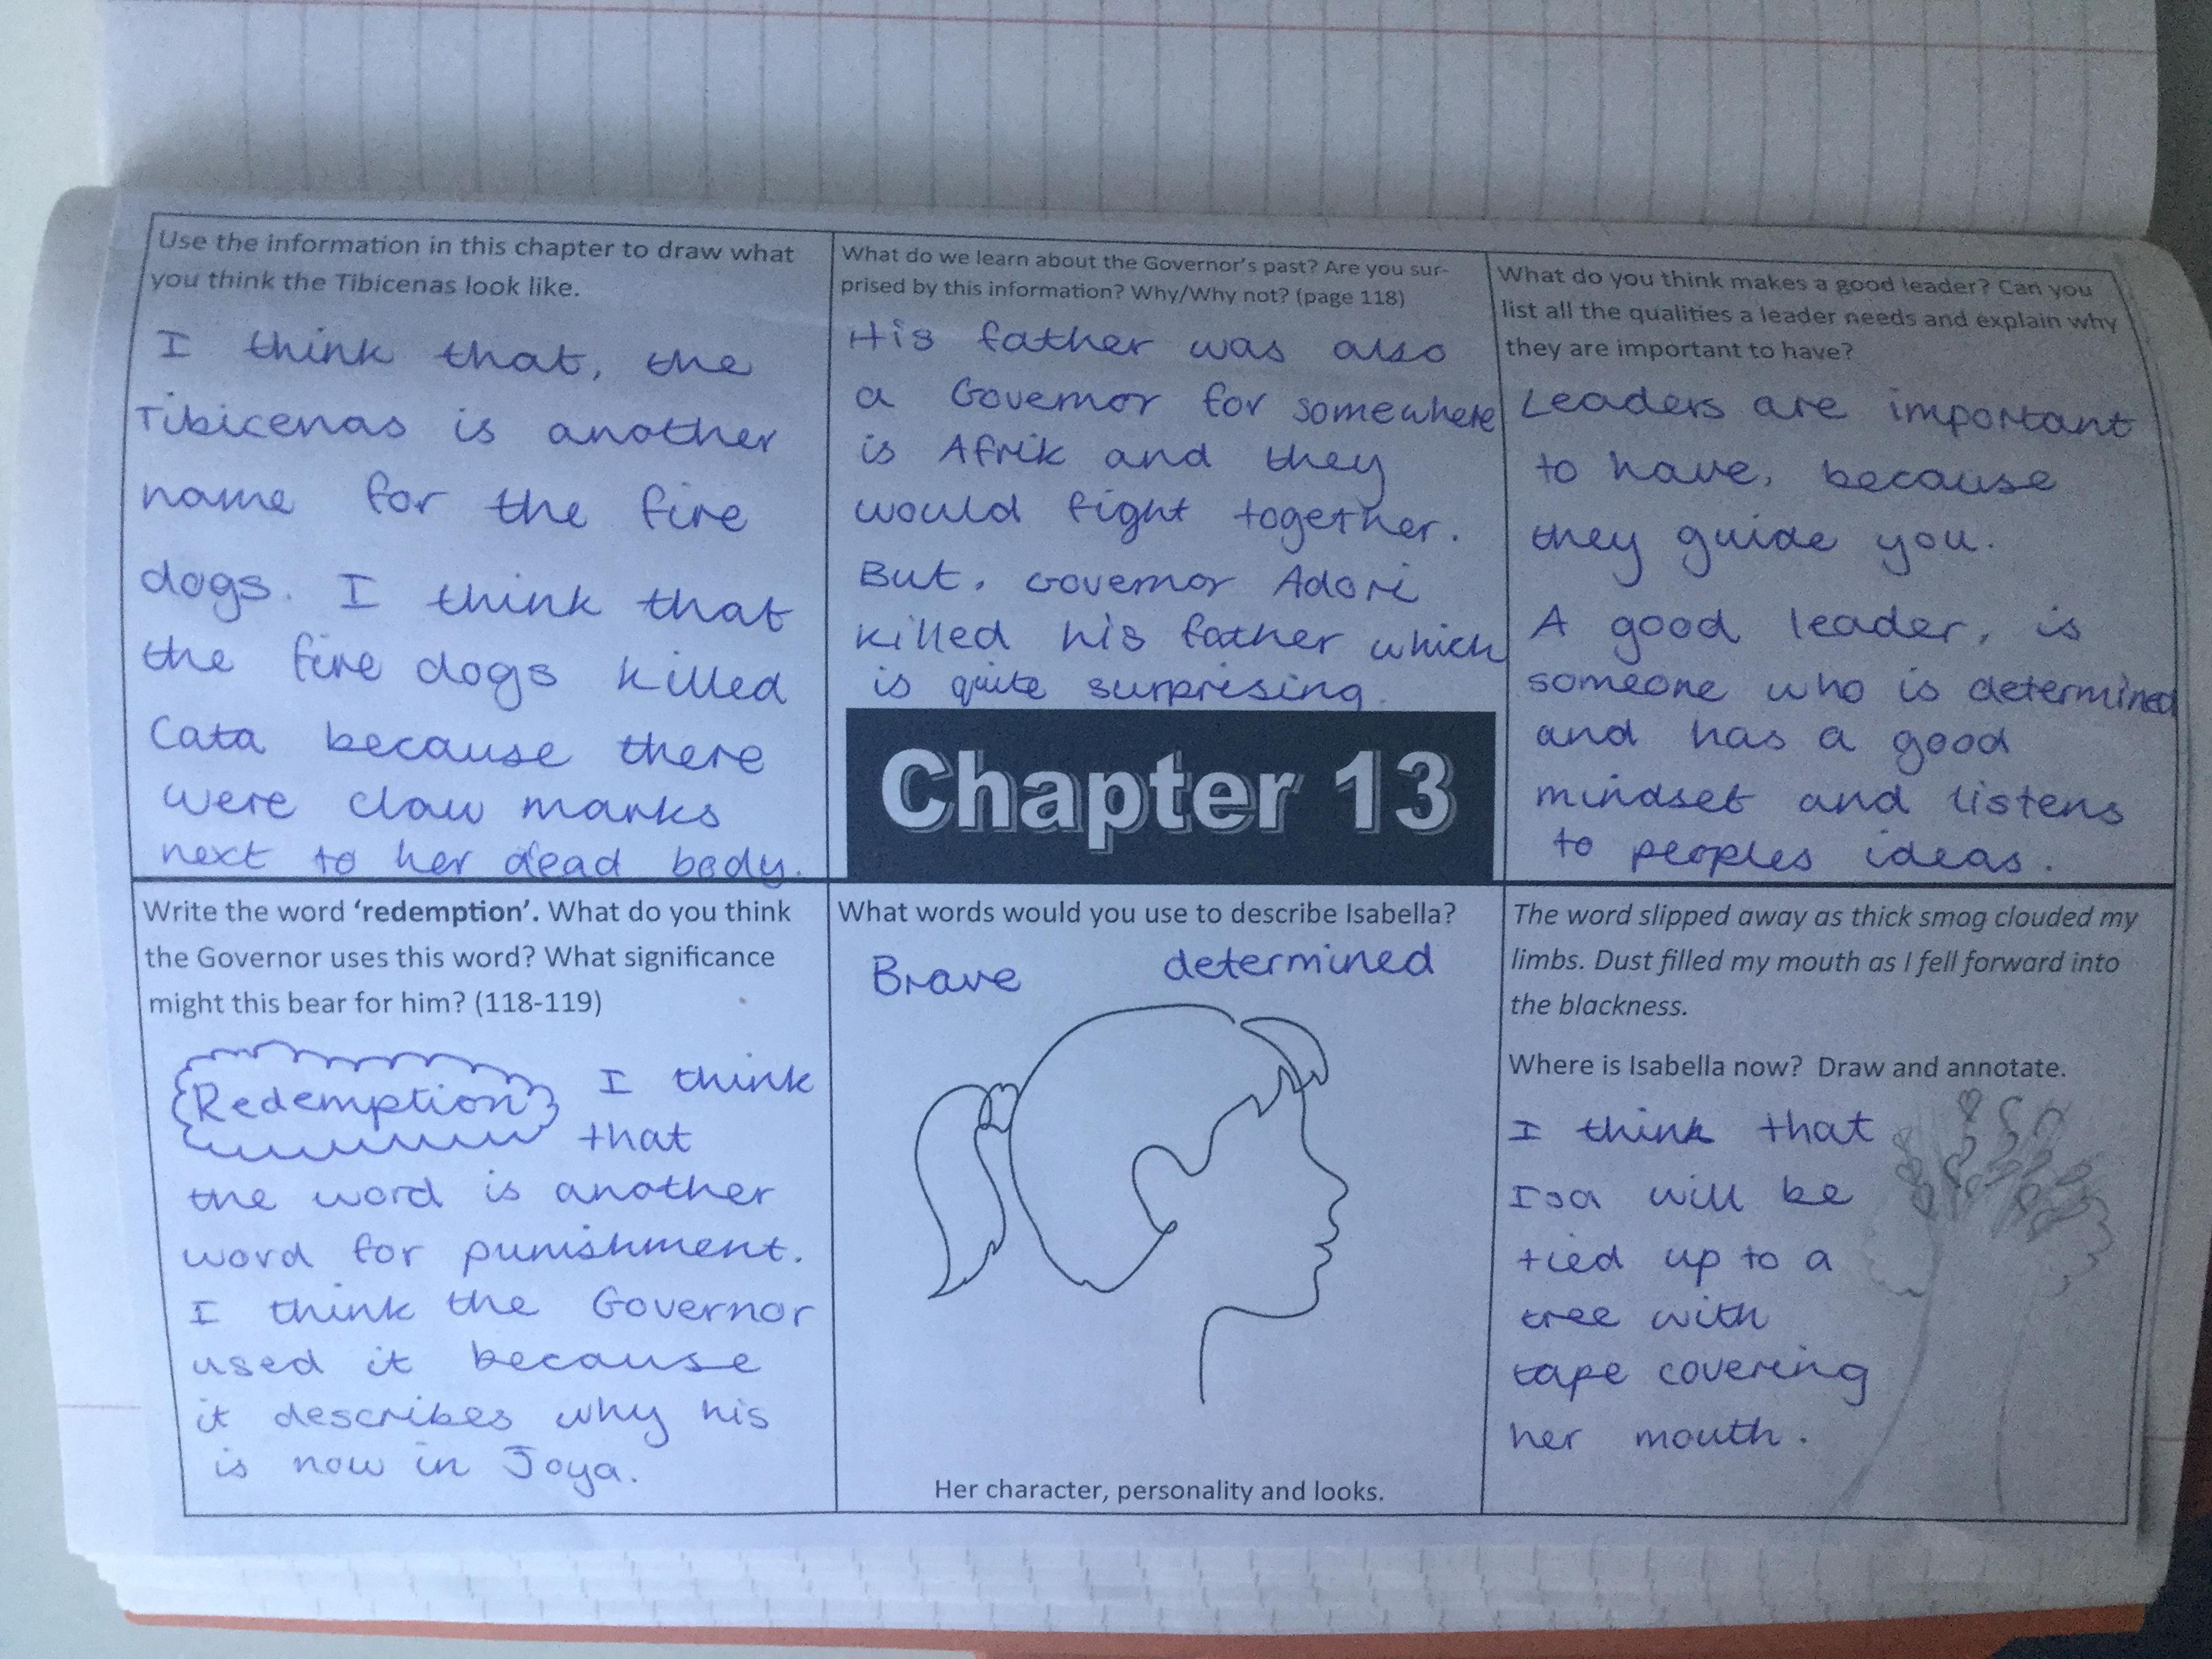 Use the information in this chapter to draw what
you think the Tibicenas look like.
I think that, the
Tibicenas is another
name for the fire
dogs. I think that
the fire dogs killed
Cata because there
were claw marks
next to her dead body.
What do we learn about the Governor's past? Are you sur-
prised by this information? Why/Why not? (page 118)
His father was also
a Governor for somewhere
is Afrik and they
would fight together.
But, Governor Adori
killed his father which
is quite surprising.
What do you think makes a good leader? Can you
list all the qualities a leader needs and explain why
they are important to have?
Leaders are important
to have, because
they guide you.
A good leader, is
someone who is determined
and has a good
mindset and listens
to peoples ideas.
Chapter 13
Write the word 'redemption'. What do you think
the Governor uses this word? What significance
might this bear for him? (118-119)
Redemption I think
that
the word is another
word for punishment.
I think the Governor
used it because
it describes why his
is now in Joya.
What words would you use to describe Isabella?
Brave determined
Her character, personality and looks.
The word slipped away as thick smog clouded my
limbs. Dust filled my mouth as I fell forward into
the blackness.
Where is Isabella now? Draw and annotate.
I think that
Isa will be
tied up to a
tree with
tape covering
her mouth.